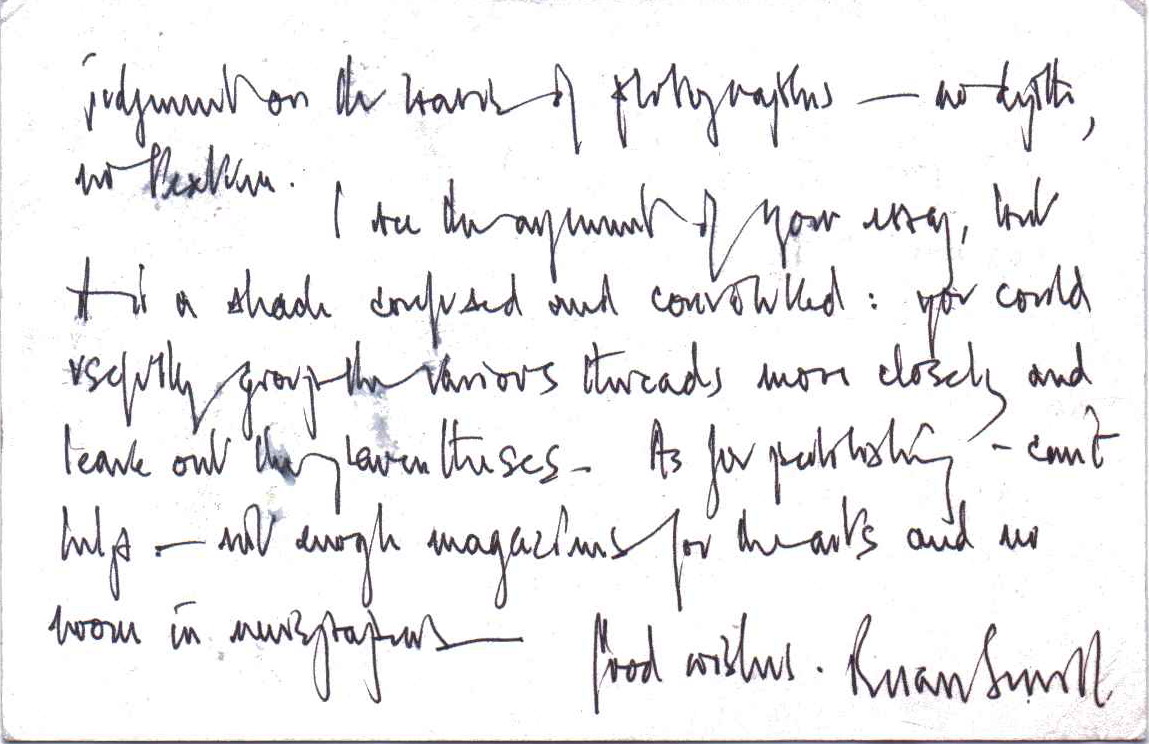 judgement on the basis of photographs — no depth,
no texture.
I see the argument of your essay, but
it is a shade confused and convoluted : you could
usefully group the various threads more closely and
leave out the parentheses — As for publishing — can't
help — not enough magazines for the arts and no
room in newspapers —
Good wishes . Brian Sewell